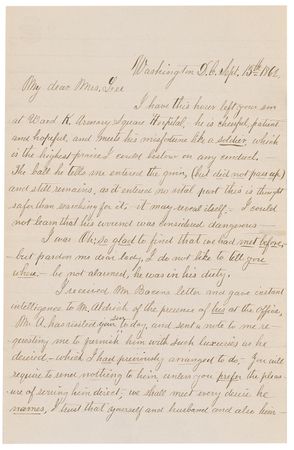 Washington D.C. Sept. 15th 186
My dear Mrs.
I have this hour left your son
at Ward K. Armory Square Hospital, he is cheerful, patient
and hopeful, and meets his misfortune like a soldier, which
is the highest praise I could bestow on any conduct.—
The ball he tells me entered the groin, (but did not pass out)
and still remains, as it entered no vital part this is thought
safer than searching for it, it may reveal itself.— I could
not learn that his wound was considered dangerous—
I was Oh! so glad to find that we had met before,—
but pardon me dear lady, I do not like to tell you
where— be not alarmed, he was in his duty.
I received Mr. Bacons letter and gave instant
intelligence to Mr. Aldrich of the presence of at the office.
Mr. A. has visited your son today, and sent a note to me re-
questing me to furnish him with such luxuries as he
desired— which I had previously arranged to do,— You will
require to send nothing to him unless you prefer the pleas-
ure of serving him direct,— we shall meet every desire he
names, I trust that yourself and husband and also him—